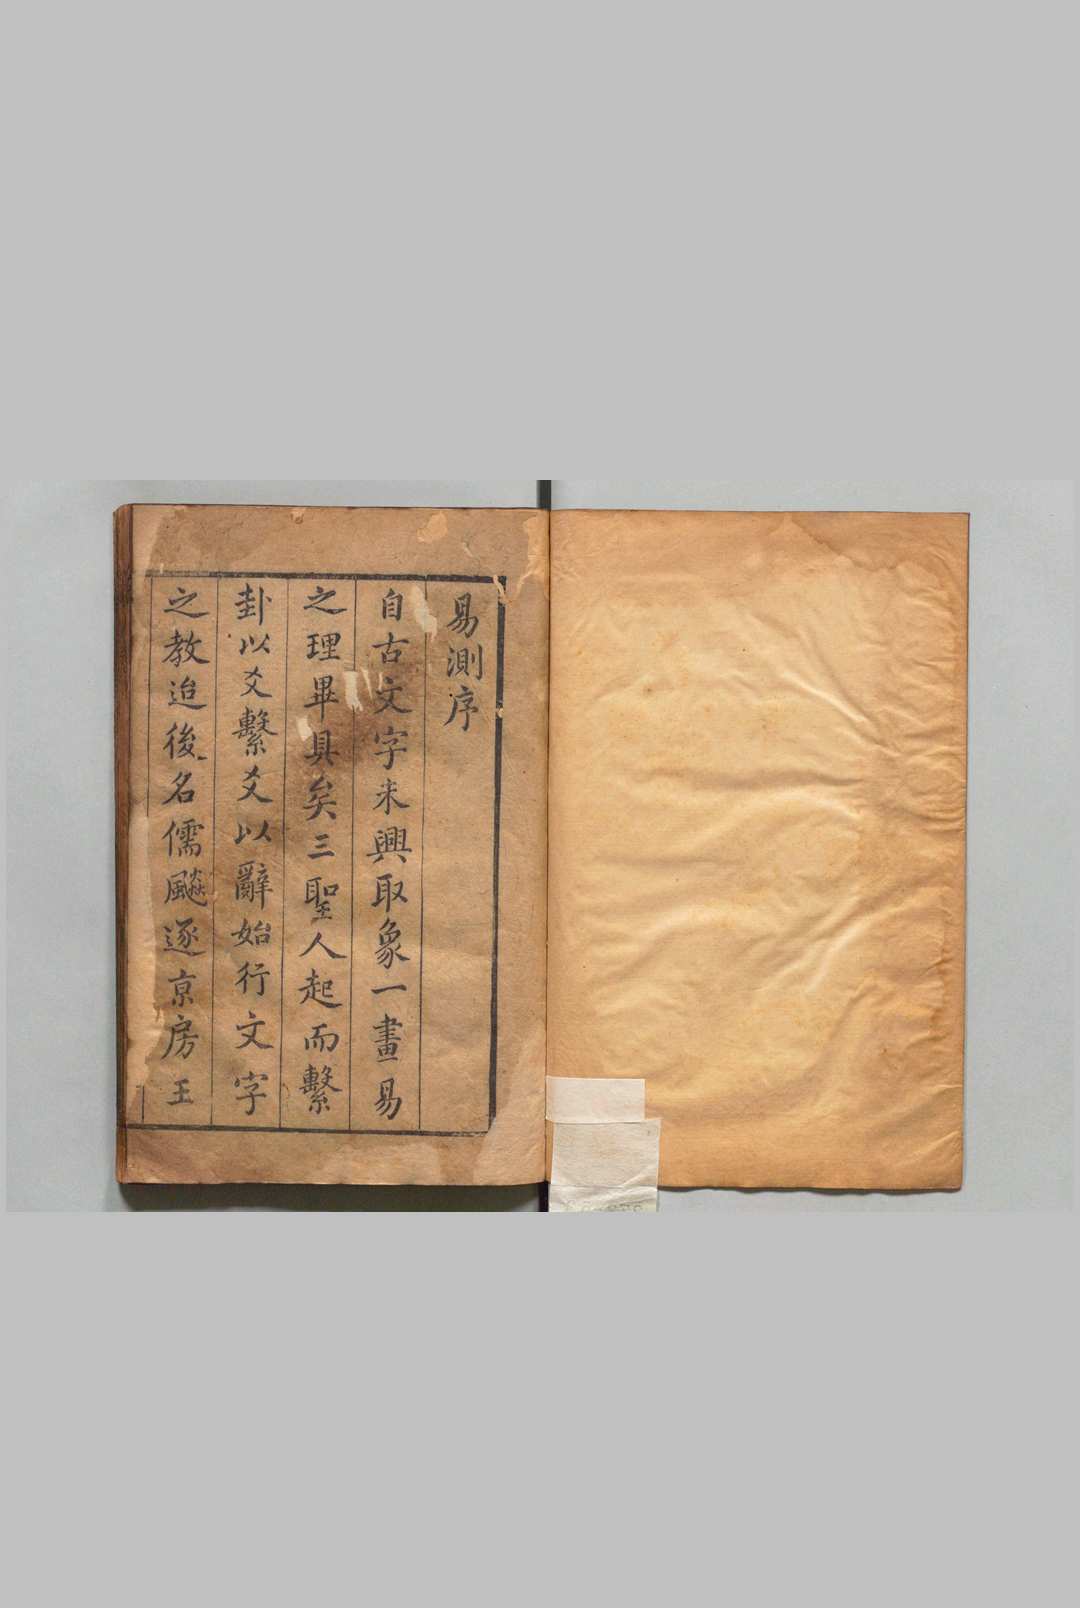 易測序
自古文字未興取象一畫易
之理畢具矣三聖人起而繫
卦以爻繫爻以辭始行文字
之教迨後名儒飈逐京房王